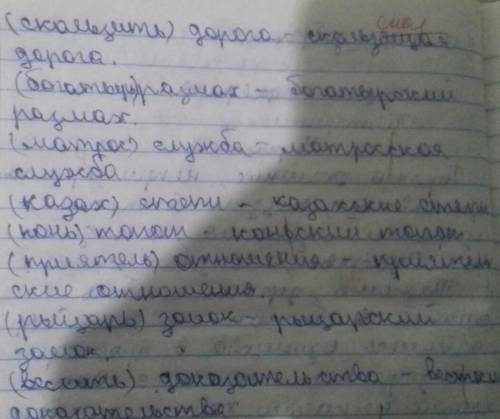 (скользить) дорога - скользящая
дорога.
(богатырь) размах - богатырский
размах.
(матрос) служба - матросская
служба
(казах) степи - казахские степи
(конь) топот - конский топот
(приятель) отношения - приятель
ские отношения.
(рыцарь) замок - рыцарский
замок
(веский) доказательства - веские
доказательства